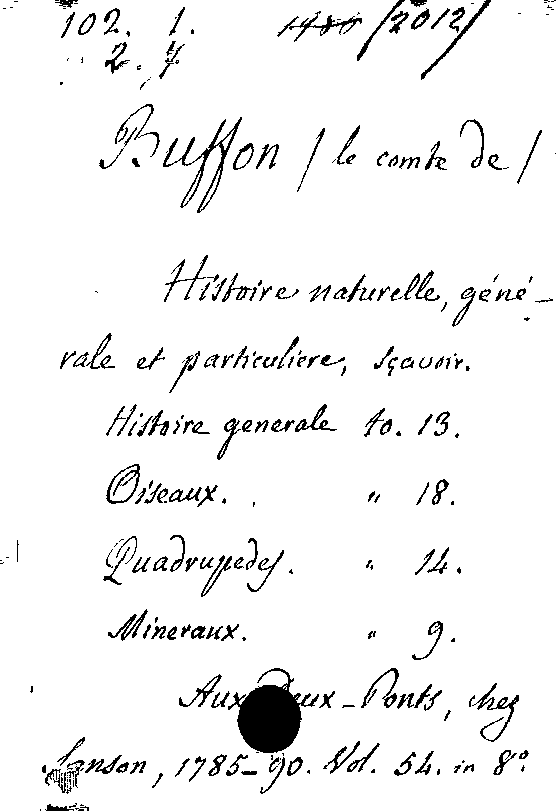 102. 1. 1980 /2012/
2. 7
Buffon / le comte de /
Histoire naturelle, géné-
rale et particuliere, sçavoir.
Histoire generale to. 13.
Oiseaux. " 18.
Quadrupedes. " 14.
Mineraux. " 9.
Aux Deux-Ponts, chez
Sanson, 1785-90. Vol. 54. in 8º.